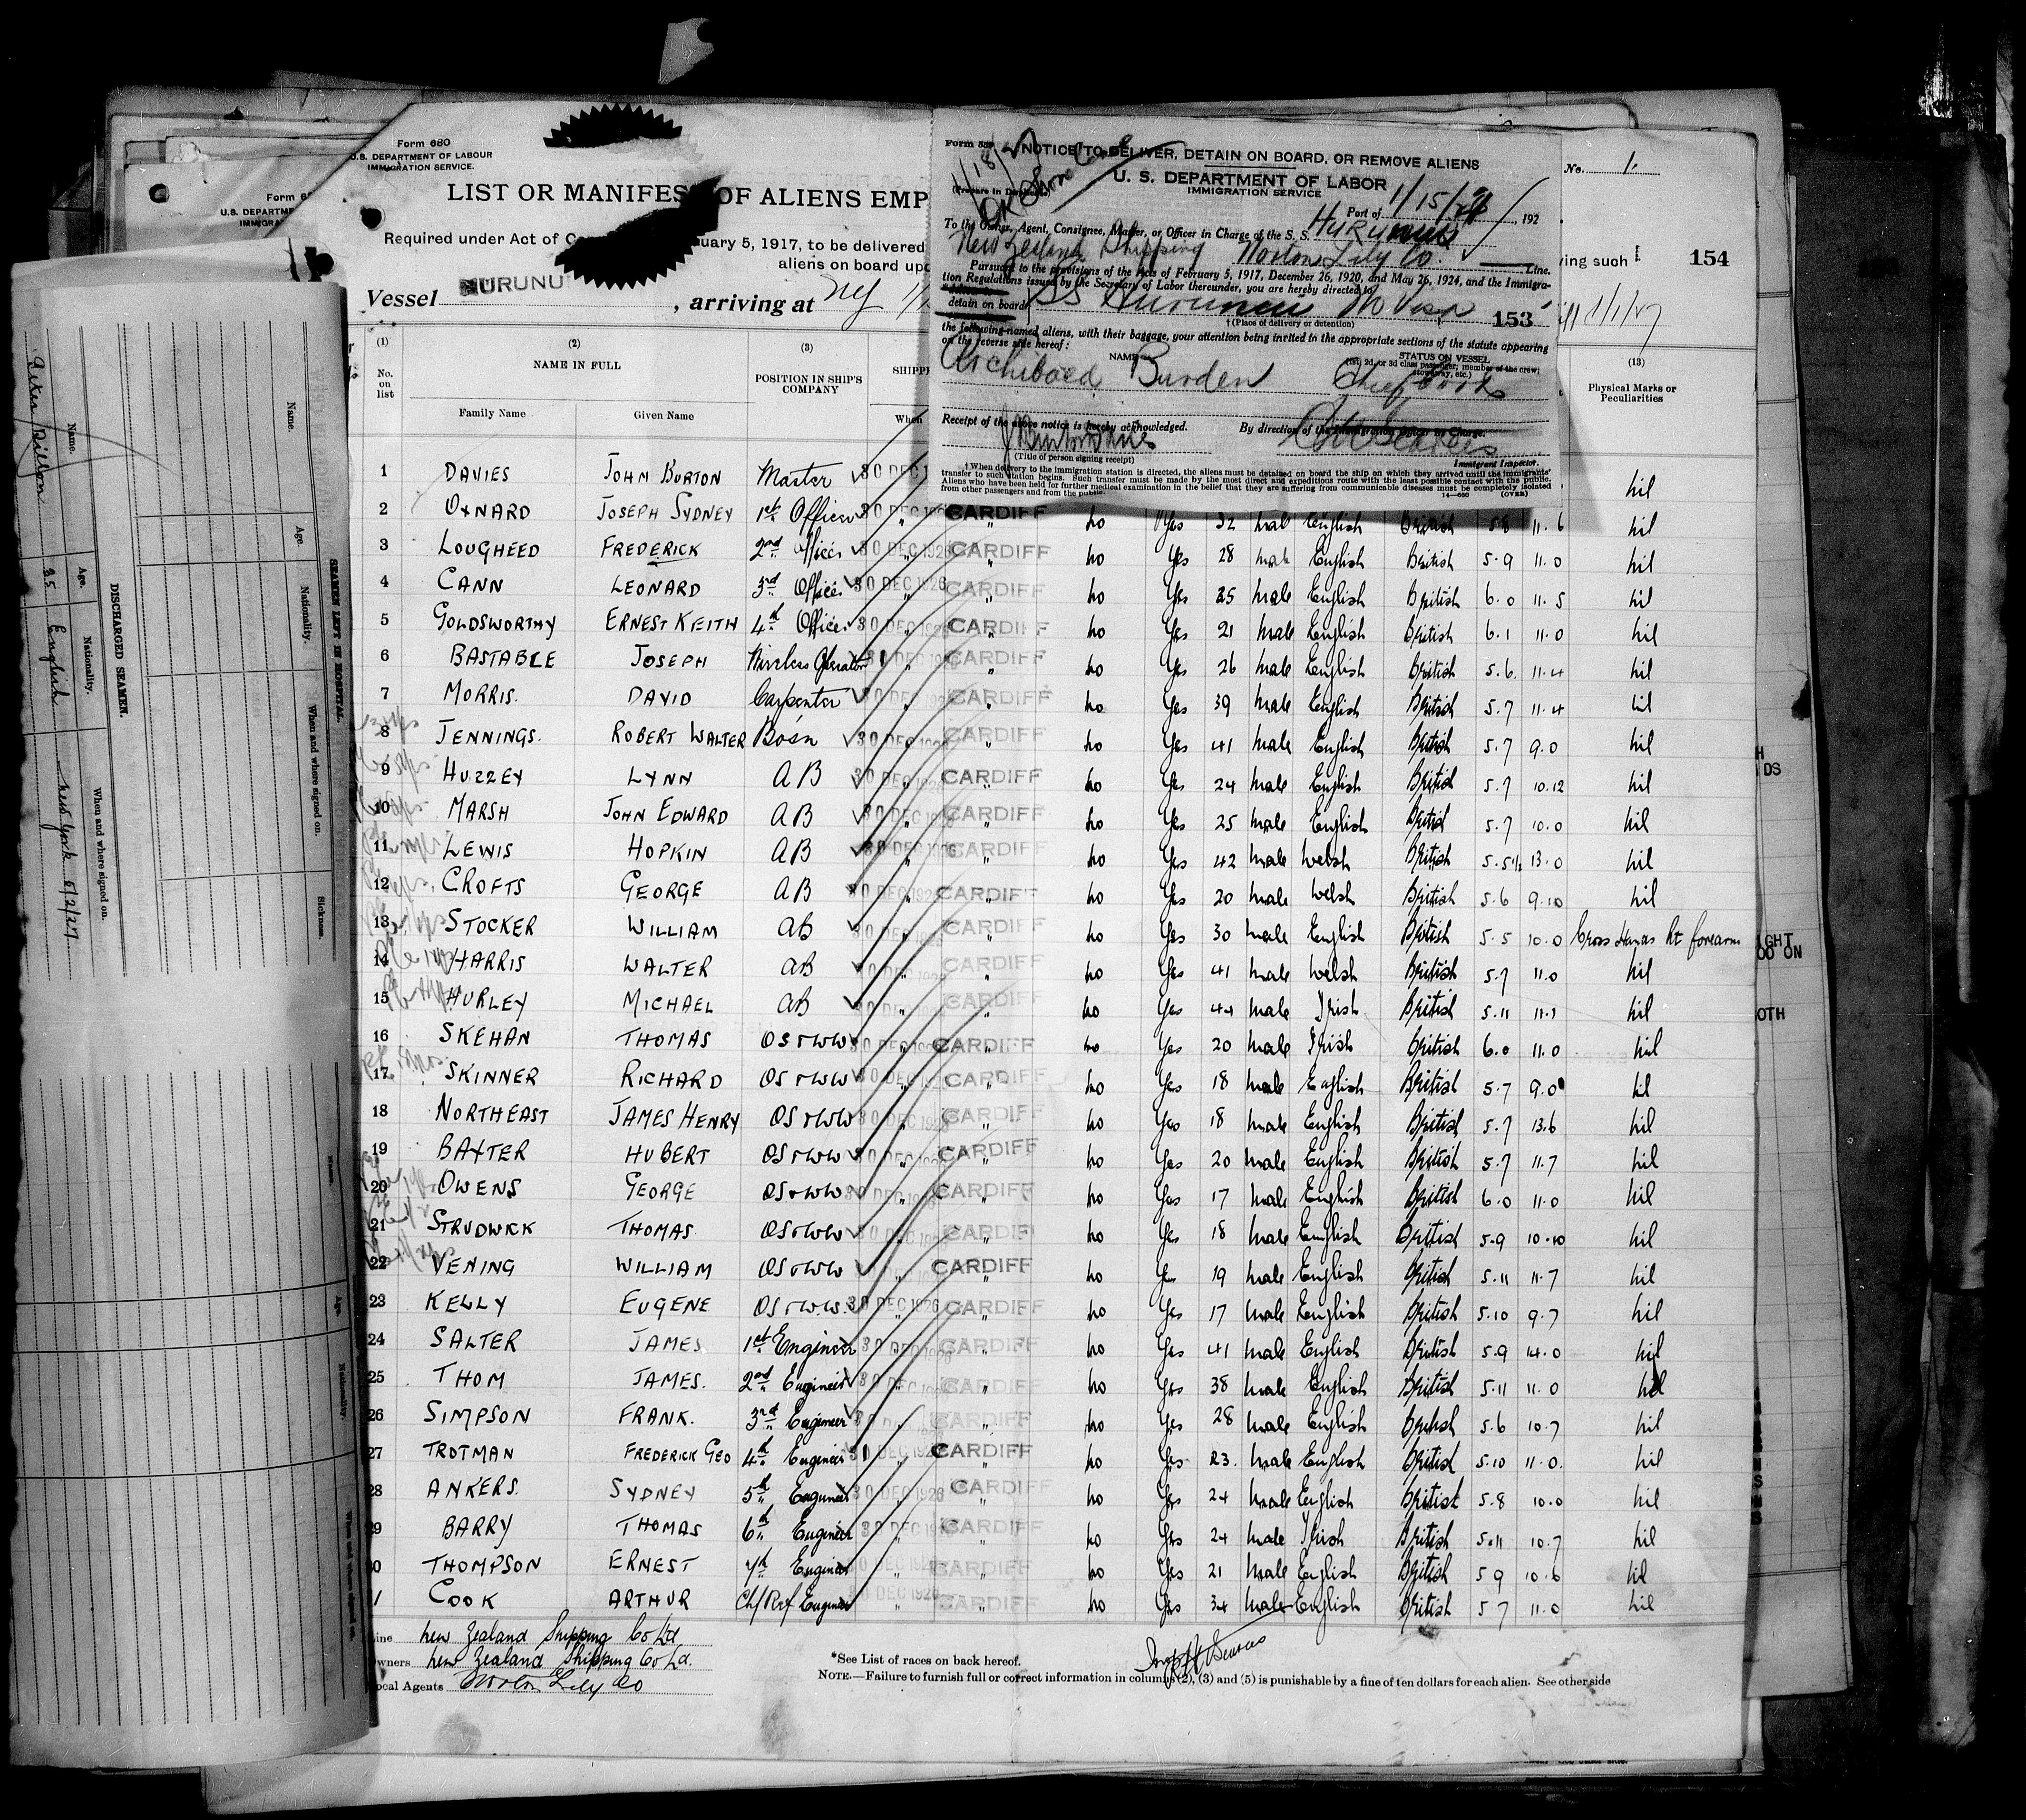 Form 680
U.S. DEPARTMENT OF LABOUR
IMMIGRATION SERVICE.
LIST OR MANIFES OF ALIENS EMP
Required under Act of uary 5, 1917, to be delivered
aliens on board upo
Vessel HURUNU , arriving at NY
No. 1.
ying such
154
NOTICE TO DELIVER, DETAIN ON BOARD, OR REMOVE ALIENS
U. S. DEPARTMENT OF LABOR
IMMIGRATION SERVICE
Port of 192
To the Owner, Agent, Consignee, Master, or Officer in Charge of the S. S.
New Zealand Shipping Norton Lily Co. Line.
Pursuant to the provisions of the Acts of February 5, 1917, December 26, 1920, and May 26, 1924, and the Immigra-
tion Regulations issued by the Secretary of Labor thereunder, you are hereby directed to
detain on board SS Hurunui No Visa 153
†(Place of delivery or detention)
the following-named aliens, with their baggage, your attention being invited in the appropriate sections of the statute appearing
on the reverse side hereof:
NAME STATUS ON VESSEL
(1st, 2d, or 3d class passenger; member of the crew;
stowaway, etc.)
Archibald Burden Chief Cook
Receipt of the above notice is hereby acknowledged. By direction of the
(Title of person signing receipt) Immigrant Inspector.
†When delivery to the immigration station is directed, the aliens must be detained on board the ship on which they arrived until the immigrants'
transfer to such station begins. Such transfer must be made by the most direct and expeditious route with the least possible contact with the public.
Aliens who have been held for further medical examination in the belief that they are suffering from communicable diseases must be completely isolated
from other passengers and from the public. 14—680 (OVER)
(1) (2) (3) (13)
No. on list NAME IN FULL POSITION IN SHIP'S COMPANY SHIPP Physical Marks or Peculiarities
Family Name Given Name When
1 DAVIES JOHN BURTON Master 30 DEC 1 nil
2 OXNARD JOSEPH SYDNEY 1st Officer 30 DEC 192 CARDIFF no Yes 32 male English British 5.8 11.6 nil
3 LOUGHEED FREDERICK 2nd Officer 30 DEC 1926 CARDIFF no Yes 28 male English British 5.9 11.0 nil
4 CANN LEONARD 3rd Officer 30 DEC 1926 CARDIFF no Yes 25 male English British 6.0 11.5 nil
5 GOLDSWORTHY ERNEST KEITH 4th Officer 30 DEC 192 CARDIFF no Yes 21 male English British 6.1 11.0 nil
6 BASTABLE JOSEPH Wireless Operator CARDIFF no Yes 26 male English British 5.6. 11.4 nil
7 MORRIS. DAVID Carpenter CARDIFF no Yes 39 male English British 5.7 11.4 nil
8 JENNINGS. ROBERT WALTER Bosn 30 DEC 192 CARDIFF no Yes 41 male English British 5.7 9.0 nil
9 HUZZEY LYNN AB CARDIFF no Yes 24 male English British 5.7 10.12 nil
10 MARSH JOHN EDWARD AB 30 DEC 192 CARDIFF no Yes 25 male English British 5.7 10.0 nil
11 LEWIS HOPKIN AB 30 DEC 1926 CARDIFF no Yes 42 male Welsh British 5.5½ 13.0 nil
12 CROFTS GEORGE AB 30 DEC 192 CARDIFF no Yes 20 male Welsh British 5.6 9.10 nil
13 STOCKER WILLIAM AB CARDIFF no Yes 30 male English British 5.5 10.0 Cross Hands Rt forearm
14 HARRIS WALTER AB CARDIFF no Yes 41 male Welsh British 5.7 11.0 nil
15 HURLEY MICHAEL AB CARDIFF no Yes 44 male Irish British 5.11 11.7 nil
16 SKEHAN THOMAS OS & WW CARDIFF no Yes 20 male Irish British 6.0 11.0 nil
17 SKINNER RICHARD OS & WW CARDIFF no Yes 18 male English British 5.7 9.0 nil
18 NORTHEAST JAMES HENRY OS & WW CARDIFF no Yes 18 male English British 5.7 13.6 nil
19 BAXTER HUBERT OS & WW CARDIFF no Yes 20 male English British 5.7 11.7 nil
20 OWENS GEORGE OS & WW CARDIFF no Yes 17 male English British 6.0 11.0 nil
21 STRUDWICK THOMAS OS & WW CARDIFF no Yes 18 male English British 5.9 10.10 nil
22 VENING WILLIAM OS & WW CARDIFF no Yes 19 male English British 5.11 11.7 nil
23 KELLY EUGENE OS & W.W. 30 DEC 1926 CARDIFF no Yes 17 male English British 5.10 9.7 nil
24 SALTER JAMES 1st Engineer 30 DEC 1926 CARDIFF no Yes 41 male English British 5.9 14.0 nil
25 THOM JAMES. 2nd Engineer 30 DEC CARDIFF no Yes 38 male English British 5.11 11.0 nil
26 SIMPSON FRANK. 3rd Engineer CARDIFF no Yes 28 male English British 5.6 10.7 nil
27 TROTMAN FREDERICK GEO 4th Engineer 30 DEC 1926 CARDIFF no Yes 23. male English British 5.10 11.0. nil
28 ANKERS. SYDNEY 5th Engineer 30 DEC 1926 CARDIFF no Yes 24 male English British 5.8 10.0 nil
29 BARRY THOMAS 6th Engineer 30 DEC 19 CARDIFF no Yes 24 male Irish British 5.11 10.7 nil
30 THOMPSON ERNEST 7th Engineer CARDIFF no Yes 21 male English British 5 9 10.6 nil
1 COOK ARTHUR Ch/Ref Engineer CARDIFF no Yes 34 male English British 5 7 11.0 nil
Line New Zealand Shipping Co Ltd.
Owners New Zealand Shipping Co Ld.
Local Agents Norton Lily Co
*See List of races on back hereof.
NOTE.—Failure to furnish full or correct information in columns (2), (3) and (5) is punishable by a fine of ten dollars for each alien. See other side
SEAMEN LEFT IN HOSPITAL.
Name. Age. Nationality. When and where signed on. Sickness.
DISCHARGED SEAMEN.
Name. Age. Nationality. When and where signed on.
Peter Dillon 25 English New York 5/2/27